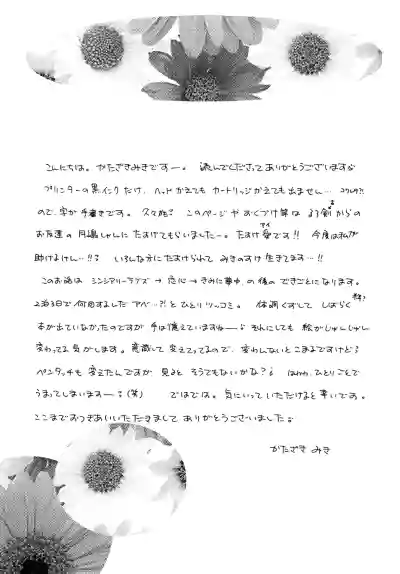 こんにちは。かたざきみきですー。読んでくださってありがとうございます
プリンターの黒インクだけ、ヘッドかえてもカートリッジかえても出ません…コワレタ?!
ので、字が手書きです。久々だ? このページやおくづけ等は るろ剣からの
お友達の月島しゃんにたすけてもらいましたー。たすけ愛です!! 今度は私が
助けまけん…!!? いろんな方にたすけられて みきのすけ 生きてます…!!
このお話は シンシアリーラブズ → 恋心 → きみに夢中 の後の できごとになります。
2泊3日で何回すましたアベ…?!とひとりツッコミ。 体調くずして しばらく
本が出ていなかったのですが 手は憶えていますね それにしても 絵がじゅんじゅん
変わってる気がします。意識して変えてってるので、変わんないとこまるですけどう
ペンタッチも変えたんですが 見ると そうでもないかな? はわわ、ひとりごとで
うまってしまいますー(笑) ではでは。気にいっていただけると幸いです。
ここまでおつきあいいただきまして ありがとうございました
かたざき みき